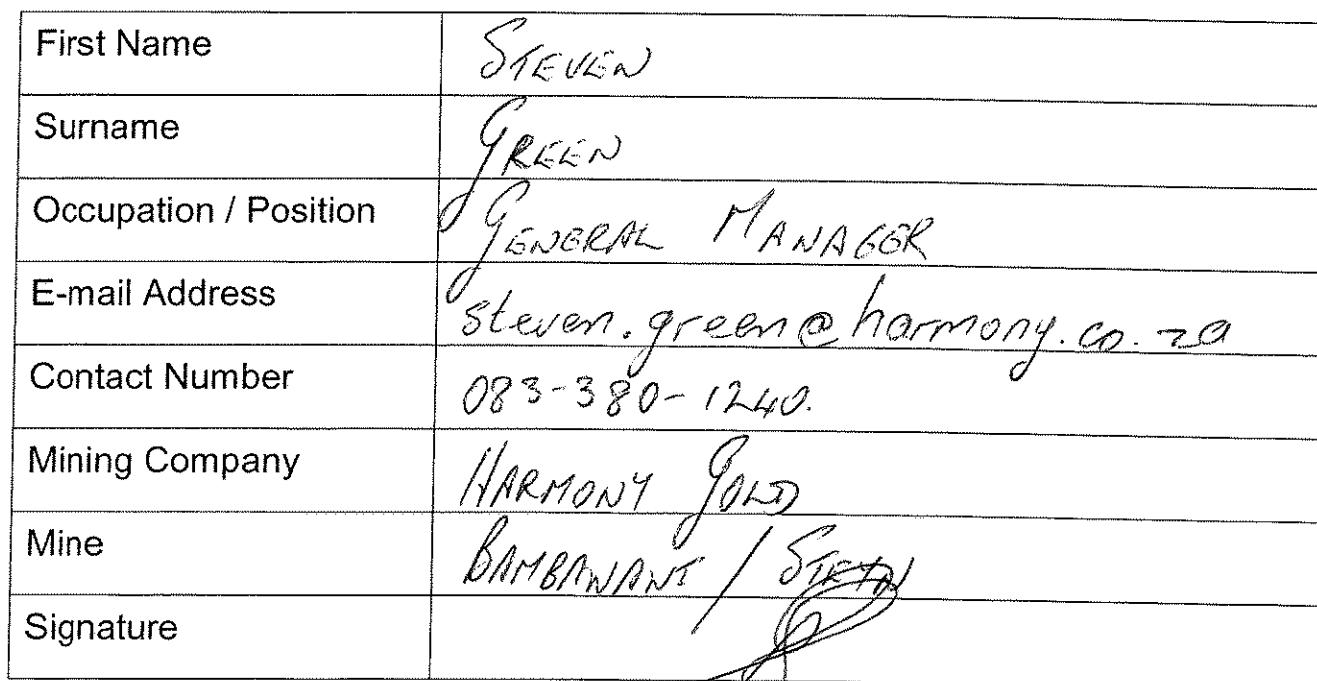 First Name STEVEN
Surname GREEN
Occupation / Position GENERAL MANAGER
E-mail Address steven.green@harmony.co.za
Contact Number 083-380-1240.
Mining Company HARMONY GOLD
Mine BAMBANANI / STEYN
Signature